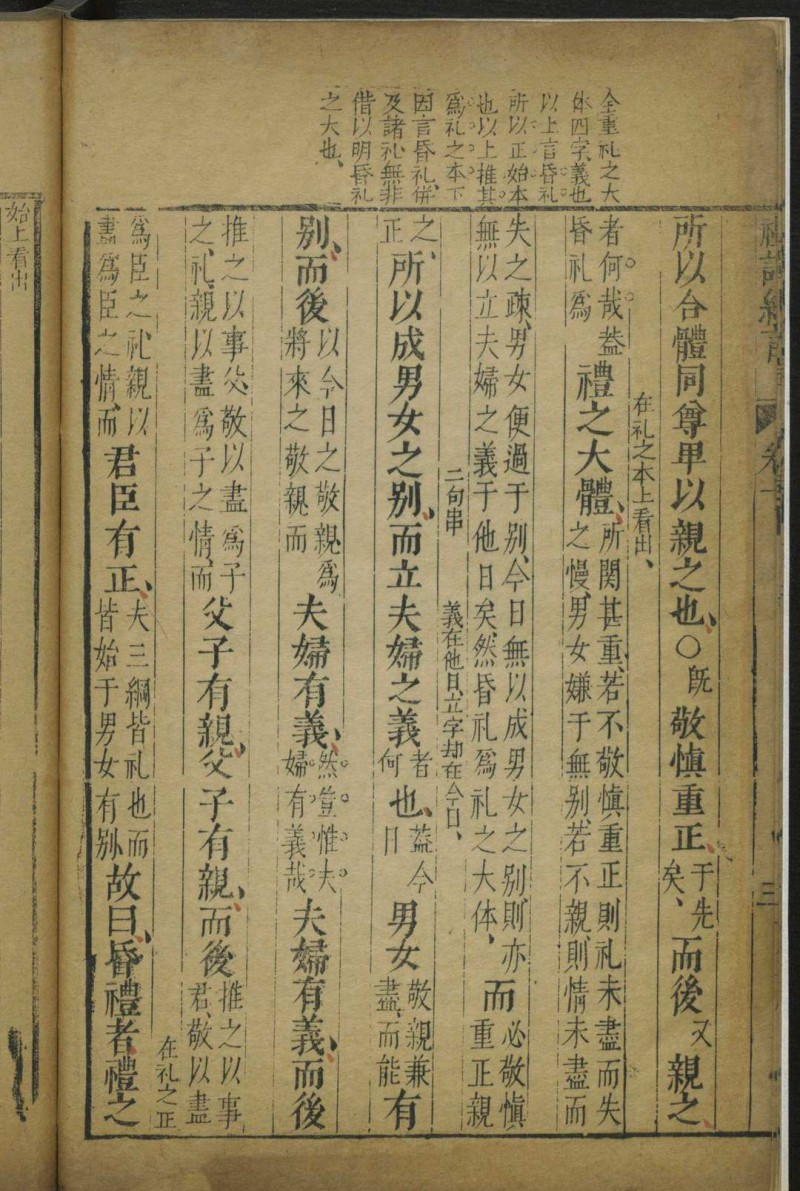 全重礼之大
体四字義也
以上言昏礼
所以正始本
也以上推其
為礼之本下
因言昏礼併
及諸礼無非
借以明昏礼
之大也、
卷一
三
所以合體同尊卑以親之也、○既敬慎重正、于先矣、而後又親之、
在礼之本上看出、
者何哉葢昏礼為禮之大體、所関甚重、若不敬慎重正則礼未盡而失之慢、男女嫌于無别、若不親則情未盡而
失之疎、男女便過于别、今日無以成男女之别、則亦無以立夫婦之義于他日矣、然昏礼為礼之大体、而必敬慎重正親
二句串
義在他日、立字却在今日、
之、正所以成男女之别、而立夫婦之義者何也、葢今日男女敬親兼盡、而能有
别、而後以今日之敬親為將来之敬親而夫婦有義、然豈惟夫婦有義哉夫婦有義、而後
推之以事父敬以盡為子之礼、親以盡為子之情、而父子有親、父子有親、而後推之以事君、敬以盡
在礼之正
為臣之礼親以盡為臣之情、而君臣有正、夫三綱皆礼也而皆始于男女有别、故曰、昏禮者、禮之
始上看出